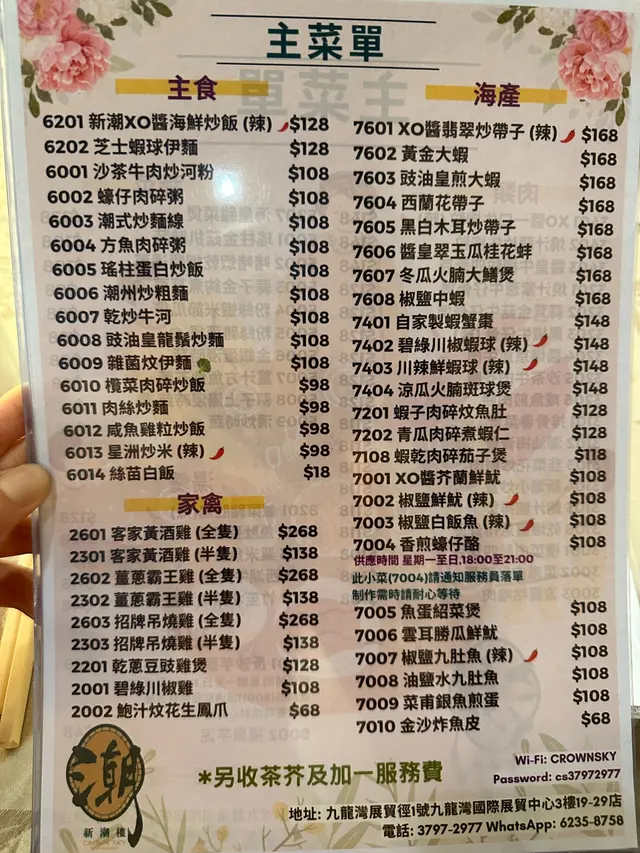 主菜單
主食
6201 新潮XO醬海鮮炒飯 (辣) $128
6202 芝士蝦球伊麵 $128
6001 沙茶牛肉炒河粉 $108
6002 蠔仔肉碎粥 $108
6003 潮式炒麵線 $108
6004 方魚肉碎粥 $108
6005 瑤柱蛋白炒飯 $108
6006 潮州炒粗麵 $108
6007 乾炒牛河 $108
6008 豉油皇龍鬚炒麵 $108
6009 雜菌炆伊麵 $108
6010 欖菜肉碎炒飯 $98
6011 肉絲炒麵 $98
6012 咸魚雞粒炒飯 $98
6013 星洲炒米 (辣) $98
6014 絲苗白飯 $18
家禽
2601 客家黃酒雞 (全隻) $268
2301 客家黃酒雞 (半隻) $138
2602 薑蔥霸王雞 (全隻) $268
2302 薑蔥霸王雞 (半隻) $138
2603 招牌吊燒雞 (全隻) $268
2303 招牌吊燒雞 (半隻) $138
2201 乾蔥豆豉雞煲 $128
2001 碧綠川椒雞 $108
2002 鮑汁炆花生鳳爪 $68
海產
7601 XO醬翡翠炒帶子 (辣) $168
7602 黃金大蝦 $168
7603 豉油皇煎大蝦 $168
7604 西蘭花帶子 $168
7605 黑白木耳炒帶子 $168
7606 醬皇翠玉瓜桂花蚌 $168
7607 冬瓜火腩大鱔煲 $168
7608 椒鹽中蝦 $168
7401 自家製蝦蟹棗 $148
7402 碧綠川椒蝦球 (辣) $148
7403 川辣鮮蝦球 (辣) $148
7404 涼瓜火腩斑球煲 $148
7201 蝦子肉碎炆魚肚 $128
7202 青瓜肉碎煮蝦仁 $128
7108 蝦乾肉碎茄子煲 $118
7001 XO醬芥蘭鮮魷 $108
7002 椒鹽鮮魷 (辣) $108
7003 椒鹽白飯魚 (辣) $108
7004 香煎蠔仔酪 $108
供應時間 星期一至日,18:00至21:00
此小菜(7004)請通知服務員落單
制作需時請耐心等待
7005 魚蛋紹菜煲 $108
7006 雲耳勝瓜鮮魷 $108
7007 椒鹽九肚魚 (辣) $108
7008 油鹽水九肚魚 $108
7009 菜甫銀魚煎蛋 $108
7010 金沙炸魚皮 $68
潮
新潮樓
CROWN SKY
*另收茶芥及加一服務費
Wi-Fi: CROWNSKY
Password: cs37972977
地址: 九龍灣展貿徑1號九龍灣國際展貿中心3樓19-29店
電話: 3797-2977 WhatsApp: 6235-8758